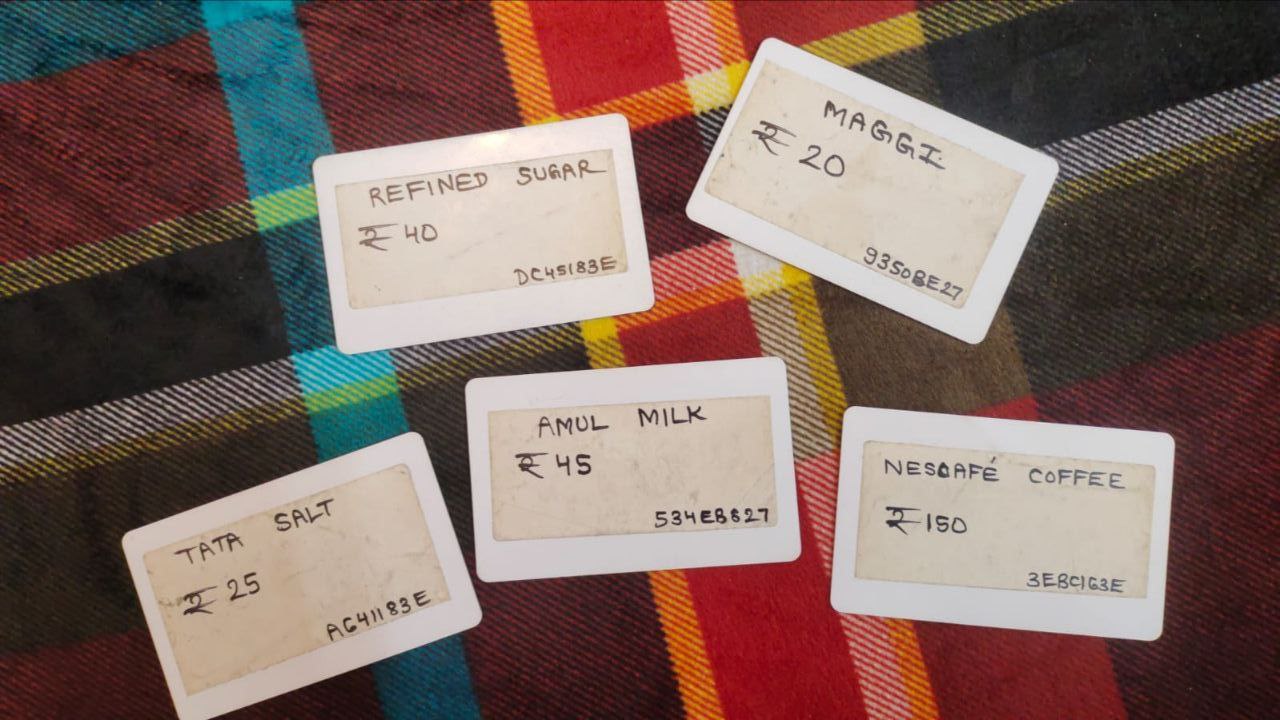 REFINED SUGAR
₹ 40
DC45183E
MAGGI
₹ 20
9350BE27
TATA SALT
₹ 25
AC41183E
AMUL MILK
₹ 45
534EB827
NESCAFÉ COFFEE
₹ 150
3EBC163E